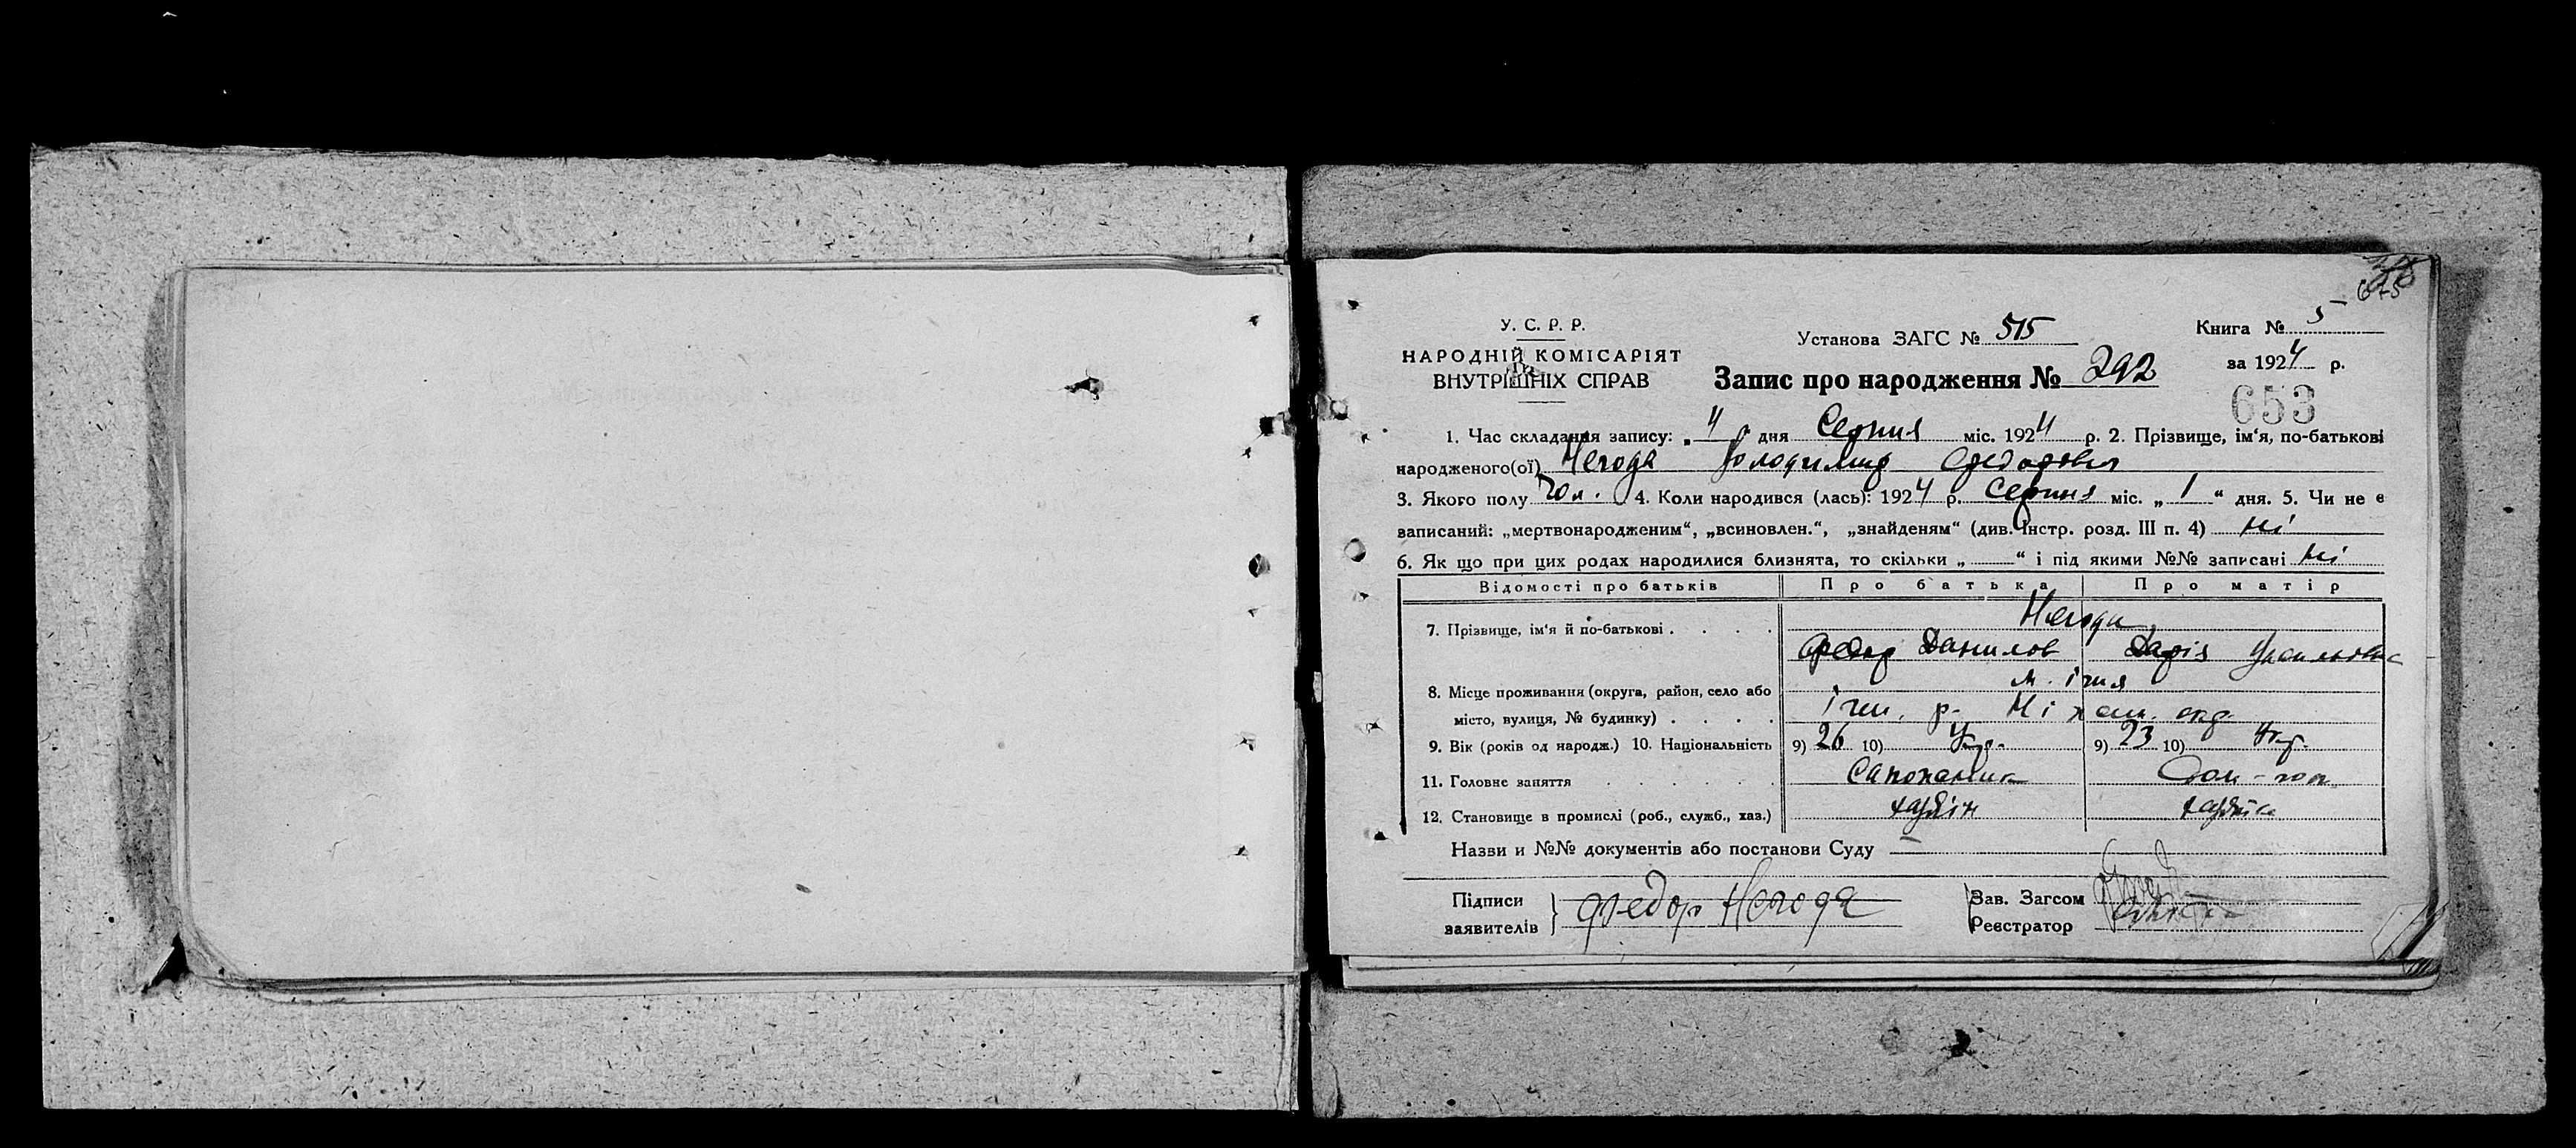 У. С. Р. Р.
НАРОДНІЙ КОМІСАРІЯТ
ВНУТРІШНІХ СПРАВ
Установа ЗАГС № 515
Запис про народження № 292
Книга № 5
за 1924 р.
653
1. Час складання запису: „4" дня Серпня міс. 1924 р. 2. Прізвище, ім'я, по-батькові
народженого(ої) Негода Володимир Федорович
3. Якого полу чол. 4. Коли народився (лась): 1924 р. Серпня міс. „1" дня. 5. Чи не є
записаний: „мертвонародженим", „всиновлен.", „знайденям" (див. Інстр. розд. III п. 4) ні
6. Як що при цих родах народилися близнята, то скільки „ " і під якими №№ записані ні
Відомості про батьків Про батька Про матір
7. Прізвище, ім'я й по-батькові . . . . Негоди
Федор Данилов Дарія
8. Місце проживання (округа, район, село або м. Ічня
місто, вулиця, № будинку) . . . . Ічен. р. Ніжен. окр.
9. Вік (років од народж.) 10. Національність 9) 26 10) Укр. 9) 23 10) Укр.
11. Головне заняття . . . . . Сапожник Дом-гос
12. Становище в промислі (роб., служб., хаз.) хазяїн
Назви и №№ документів або постанови Суду —
Підписи
заявителів } Федор Негода
Зав. Загсом
Реєстратор